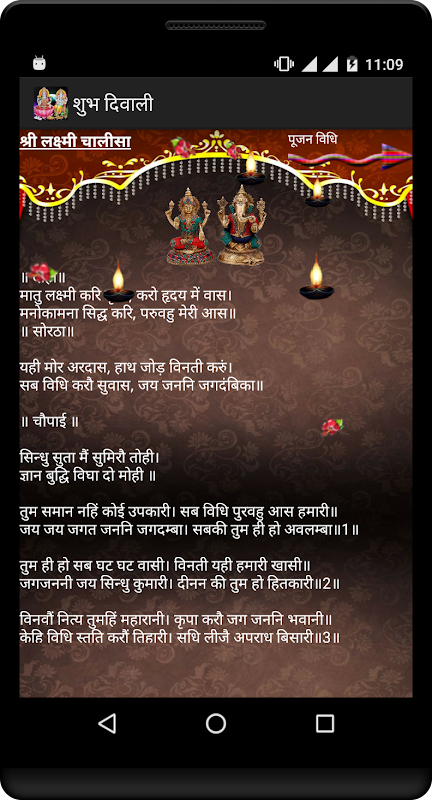 11:09
शुभ दिवाली
श्री लक्ष्मी चालीसा
पूजन विधि
॥ ॥
मातु लक्ष्मी करि करो हृदय में वास।
मनोकामना सिद्घ करि, परुवहु मेरी आस॥
॥ सोरठा॥
यही मोर अरदास, हाथ जोड़ विनती करुं।
सब विधि करौ सुवास, जय जननि जगदंबिका॥
॥ चौपाई ॥
सिन्धु सुता मैं सुमिरौ तोही।
ज्ञान बुद्घि विघा दो मोही ॥
तुम समान नहिं कोई उपकारी। सब विधि पुरवहु आस हमारी॥
जय जय जगत जननि जगदम्बा। सबकी तुम ही हो अवलम्बा॥1॥
तुम ही हो सब घट घट वासी। विनती यही हमारी खासी॥
जगजननी जय सिन्धु कुमारी। दीनन की तुम हो हितकारी॥2॥
विनवौं नित्य तुमहिं महारानी। कृपा करौ जग जननि भवानी॥
केहि विधि स्तुति करौं तिहारी। सुधि लीजै अपराध बिसारी॥3॥